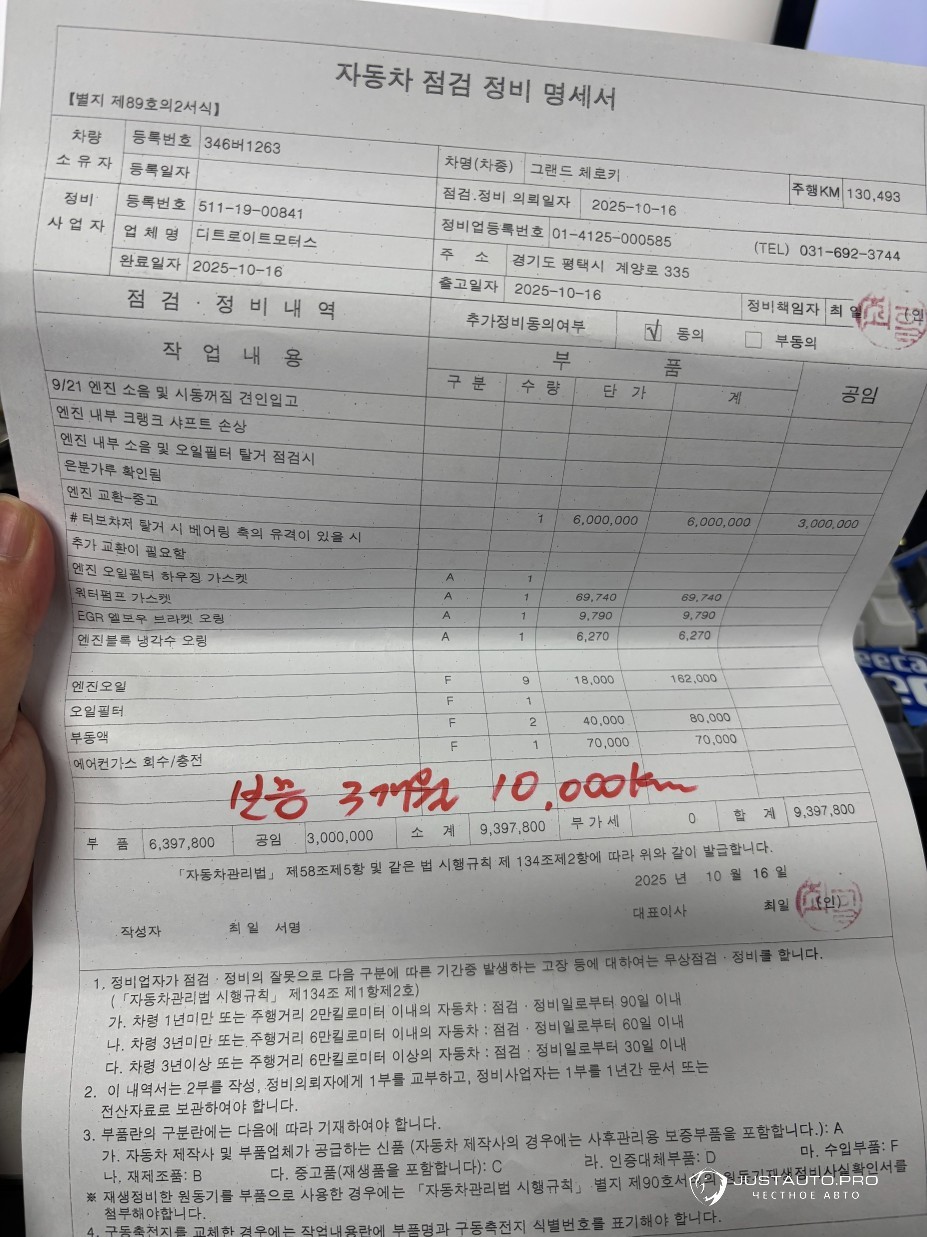 자동차 점검 정비 명세서
【별지 제89호의2서식】
차량 소유자 등록번호 346버1263 차명(차종) 그랜드 체로키 주행KM 130,493
등록일자 점검.정비 의뢰일자 2025-10-16
정비 사업자 등록번호 511-19-00841 정비업등록번호 01-4125-000585 (TEL) 031-692-3744
업체명 디트로이트모터스 주 소 경기도 평택시 계양로 335
완료일자 2025-10-16 출고일자 2025-10-16 정비책임자 최 일 (인
점검·정비내역 추가정비동의여부 √ 동의 부동의
작업내용 부 품 공임
구 분 수 량 단 가 계
9/21 엔진 소음 및 시동꺼짐 견인입고
엔진 내부 크랭크 샤프트 손상
엔진 내부 소음 및 오일필터 탈거 점검시
은분가루 확인됨
엔진 교환-중고 1 6,000,000 6,000,000 3,000,000
# 터보차저 탈거 시 베어링 축의 유격이 있을 시
추가 교환이 필요함
엔진 오일필터 하우징 가스켓 A 1
워터펌프 가스켓 A 1 69,740 69,740
EGR 엘보우 브라켓 오링 A 1 9,790 9,790
엔진블록 냉각수 오링 A 1 6,270 6,270
엔진오일 F 9 18,000 162,000
오일필터 F 1
부동액 F 2 40,000 80,000
에어컨가스 회수/충전 F 1 70,000 70,000
보증 3개월 10,000km
부 품 6,397,800 공임 3,000,000 소 계 9,397,800 부가세 0 합 계 9,397,800
「자동차관리법」 제58조제5항 및 같은 법 시행규칙 제 134조제2항에 따라 위와 같이 발급합니다.
2025 년 10 월 16 일
작성자 최 일 서명 대표이사 최일 (인)
1. 정비업자가 점검·정비의 잘못으로 다음 구분에 따른 기간중 발생하는 고장 등에 대하여는 무상점검·정비를 합니다.
(「자동차관리법 시행규칙」 제134조 제1항제2호)
가. 차령 1년미만 또는 주행거리 2만킬로미터 이내의 자동차 : 점검·정비일로부터 90일 이내
나. 차령 3년미만 또는 주행거리 6만킬로미터 이내의 자동차 : 점검·정비일로부터 60일 이내
다. 차령 3년이상 또는 주행거리 6만킬로미터 이상의 자동차 : 점검·정비일로부터 30일 이내
2. 이 내역서는 2부를 작성, 정비의뢰자에게 1부를 교부하고, 정비사업자는 1부를 1년간 문서 또는
전산자료로 보관하여야 합니다.
3. 부품란의 구분란에는 다음에 따라 기재하여야 합니다.
가. 자동차 제작사 및 부품업체가 공급하는 신품 (자동차 제작사의 경우에는 사후관리용 보증부품을 포함합니다.): A
나. 재제조품: B 다. 중고품(재생품을 포함합니다): C 라. 인증대체부품: D 마. 수입부품: F
※ 재생정비한 원동기를 부품으로 사용한 경우에는 「자동차관리법 시행규칙」 별지 제90호서식의 원동기재생정비사실확인서를
첨부해야합니다.
4. 구동축전지를 교체한 경우에는 작업내용란에 부품명과 구동축전지 식별번호를 표기해야 합니다.
JUSTAUTO.PRO
ЧЕСТНОЕ АВТО